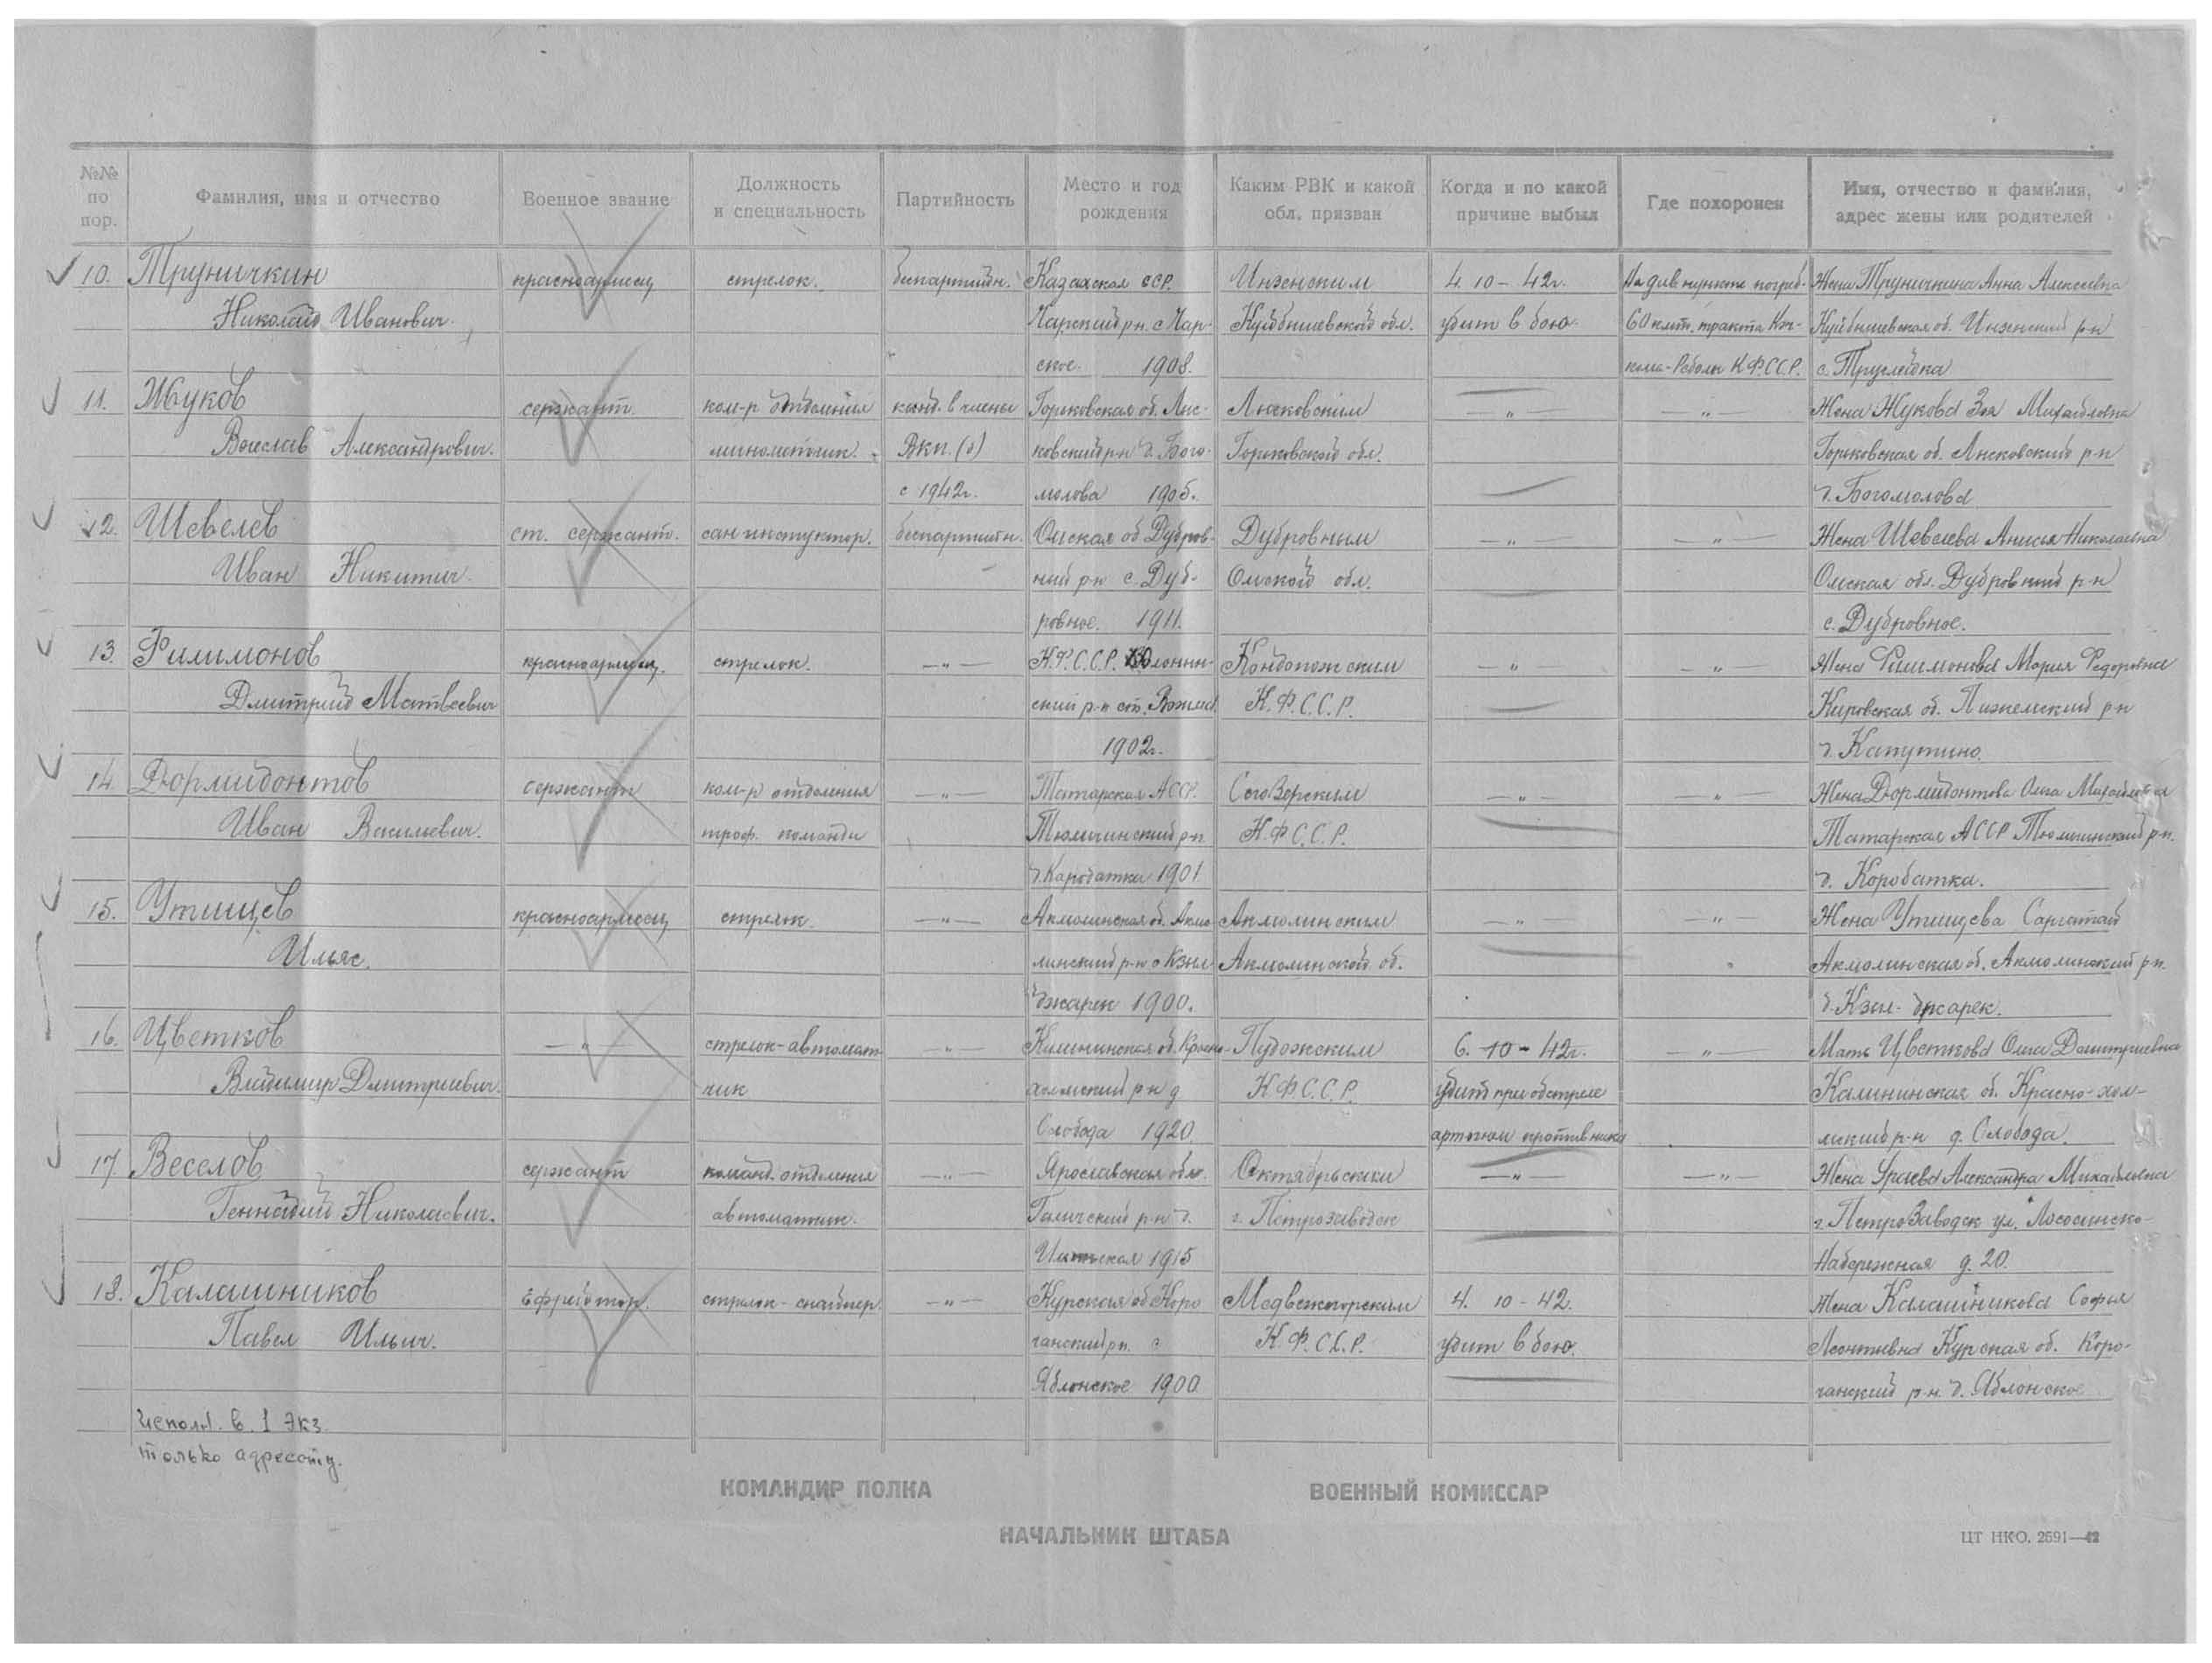 №№ по пор.
Фамилия, имя и отчество
Военное звание
Должность и специальность
Партийность
Место и год рождения
Каким РВК и какой обл. призван
Когда и по какой причине выбыл
Где похоронен
Имя, отчество и фамилия, адрес жены или родителей
10. Труничкин красноармеец стрелок. беспартийн. Казахская ССР. Инзенским 4. 10 - 42г. На див. пункте погреб. Жена Труничкина Анна Алексеевна
Николай Иванович. Чарский р-н. с Чар- Куйбышевской обл. убит в бою. 60 клт. тракта Куйбышевская об. Инзенский р-н
ское. 1908. Реболы К.Ф.С.С.Р. с. Труслейка
11. Жуков сержант ком-р отделения канд. в члены Горьковская об. Лыс- Лысковским — " — — " — Жена Жукова Зоя Михайловна
Александрович. минометчик. ВКП. (б) ковский р-н д. Бого- Горьковской обл. Горьковская об. Лысковский р-н
с 1942г. молова 1905. д. Богомолова
12. Шевелев ст. сержант. сан инструктор. беспартийн. Омская об. Дубров- Дубровным — " — — " — Жена Шевелева Анисья Николаевна
Иван Никитич. ный р-н с. Дуб- Омской обл. Омская обл. Дубровный р-н
ровное. 1911. с. Дубровное.
13. Филимонов красноармеец. стрелок. — " — К.Ф.С.С.Р. Кондопожским — " — — " — Жена Филимонова Мария Федоровна
Дмитрий Матвеевич ский р-н ст. К.Ф.С.С.Р. Кировская об. р-н
1902г. д. Капутино.
14 Дормидонтов сержант ком-р отделения — " — Татарская АССР. — " — — " — Жена Дормидонтова Ольга Михайловна
Иван Васильевич. троф. команды р-н К.Ф.С.С.Р. Татарская АССР р-н.
1901 д. Коробатка.
15. Утищев красноармеец стрелок. — " — Акмолинская об. Акмо- Акмолинским — " — — " — Жена Утищева
Ильяс. линский р-н Кзыл- Акмолинской об. Акмолинская об. Акмолинский р-н.
джарек 1900. Кзыл-джарек.
16. Цветков — " — стрелок-автомат- — " — Калининская об. Красно- Пудожским 6. 10 - 42г. — " — Мать Цветкова Ольга Дмитриевна
Владимир Дмитриевич. чик холмский р-н д К.Ф.С.С.Р. убит при обстреле Калининская об. Красно-хол-
Слобода 1920. артогнем противника мский р-н д. Слобода.
17 Веселов сержант команд. отделения — " — Ярославская обл. Октябрьским — " — — " — Жена Александра Михайловна
Геннадий Николаевич. автоматчик. Галичский р-н д. г. Петрозаводск г. ПетроЗаводск ул. Лососинско-
1915 Набережная д. 20.
18. Калашников Ефрейтор. стрелок-снайпер. — " — Курская об. Коро- Медвежгорским 4. 10 - 42. Жена Калашникова Софья
Павел Ильич. чанский р-н. с К.Ф.С.С.Р. убит в бою. Леонтиевна Курская об. Коро-
Яблонское 1900 чанский р-н. д. Яблонское
исполн. в. 1 экз.
только адресату.
КОМАНДИР ПОЛКА
ВОЕННЫЙ КОМИССАР
НАЧАЛЬНИК ШТАБА
ЦТ НКО. 2591—42